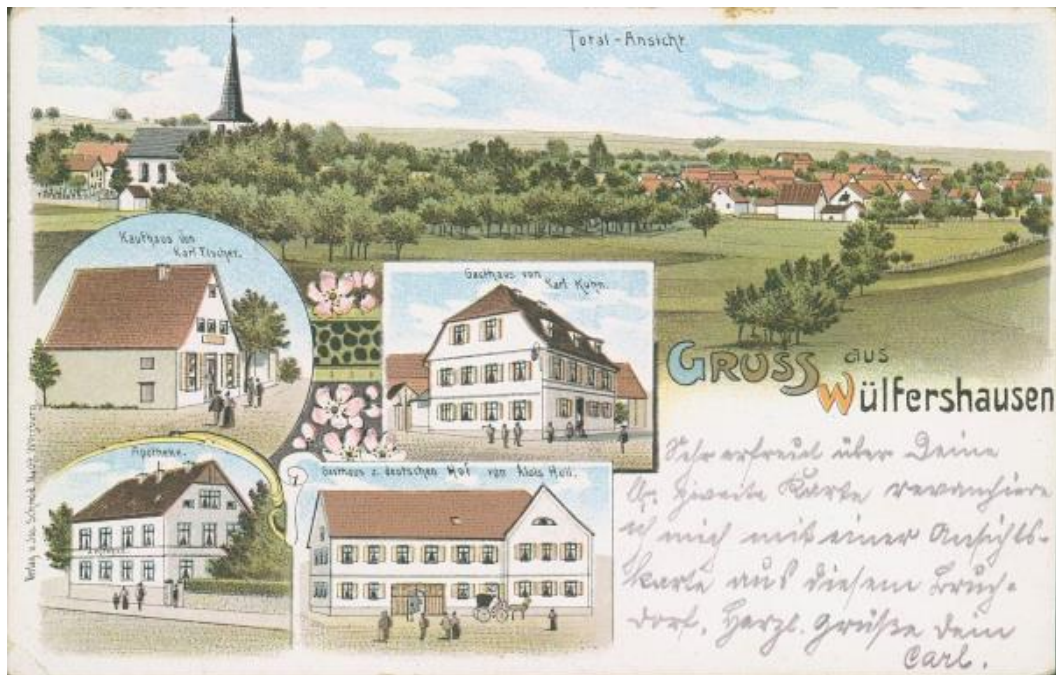 Total-Ansicht
Kaufhaus von
Karl Fischer.
Gasthaus von
Karl Kuhn.
GRUSS aus
Wülfershausen
Apotheke.
Gasthaus z. deutschen Hof von Alois Hüll.
Verlag v. Jul. Schmid Nachf. Würzburg
Sehr erfreut über Deine
lb. zweite Karte revanchiere
ich mich mit einer Ansichts-
karte aus diesem Bruch-
dorf. Herzl. Grüße Dein
Carl.